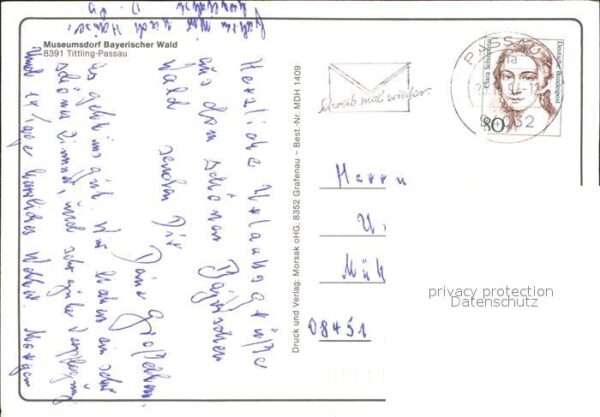 Museumsdorf Bayerischer Wald
8391 Tittling-Passau
Herzliche Urlaubsgrüße
aus dem schönen Bayrischen
Wald senden Dir
Deine Großeltern
Uns geht es gut. Wir haben ein sehr
schönes Zimmer, und sehr gute Verpflegung
Und 14 Tage herrliches Wetter. Morgen
fahren wir nach Hause.
Druck und Verlag: Morsak oHG, 8352 Grafenau – Best.-Nr. MDH 1409
Schreib mal wieder.
PASSAU
94-12
Clara Schumann
Deutsche Bundespost
80
Herrn
U
Mül
08451
privacy protection
Datenschutz